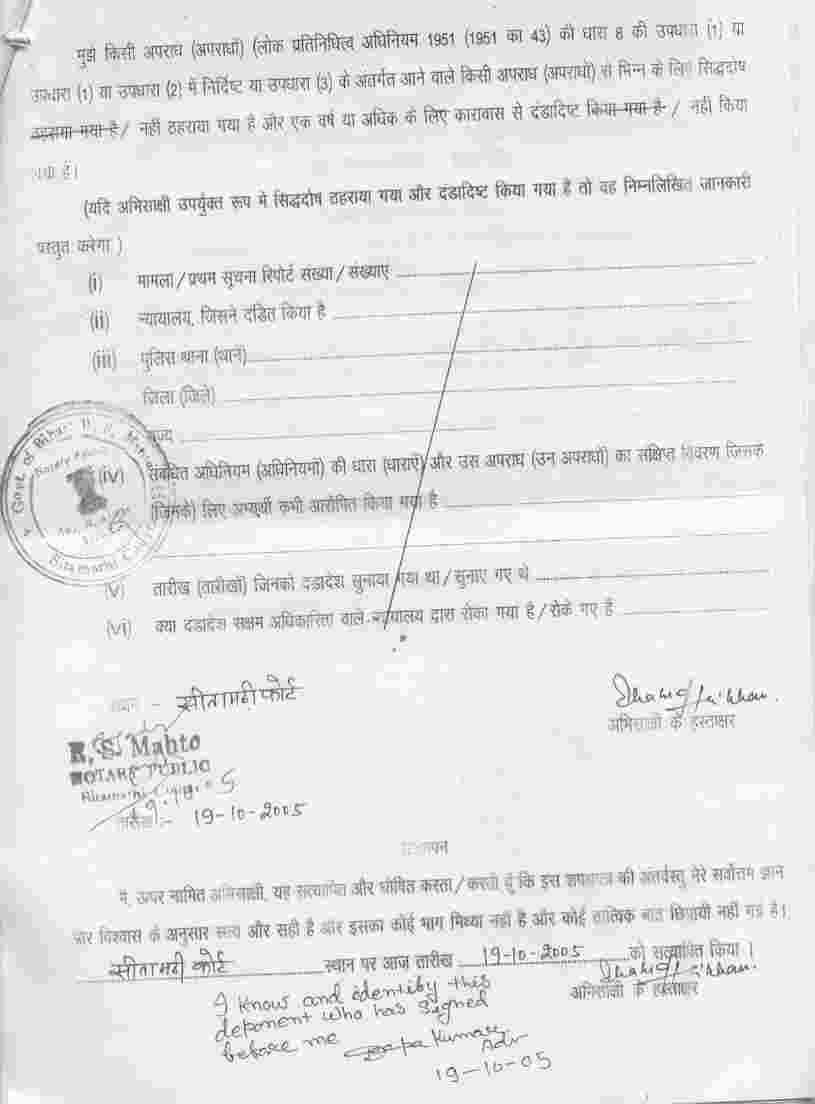 मुझे किसी अपराध (अपराधों) (लोक प्रतिनिधित्व अधिनियम 1951 (1951 का 43) की धारा 8 की उपधारा (1) या
उपधारा (1) या उपधारा (2) में निर्दिष्ट या उपधारा (3) के अंतर्गत आने वाले किसी अपराध (अपराधों) से भिन्न के लिए सिद्धदोष
ठहराया गया है / नहीं ठहराया गया है और एक वर्ष या अधिक के लिए कारावास से दंडादिष्ट किया गया है / नहीं किया
गया है।
(यदि अभिसाक्षी उपर्युक्त रूप में सिद्धदोष ठहराया गया और दंडादिष्ट किया गया है तो वह निम्नलिखित जानकारी
प्रस्तुत करेगा )
(i) मामला / प्रथम सूचना रिपोर्ट संख्या / संख्याएं
(ii) न्यायालय, जिसने दंडित किया है
(iii) पुलिस थाना (थाने)
जिला (जिले)
राज्य
(iv) संबंधित अधिनियम (अधिनियमों) की धारा (धाराएं) और उस अपराध (उन अपराधों) का संक्षिप्त विवरण जिसके
(जिनके) लिए अभ्यर्थी कभी आरोपित किया गया है
(v) तारीख (तारीखों) जिनको दंडादेश सुनाया गया था / सुनाए गए थे
(vi) क्या दंडादेश सक्षम अधिकारिता वाले न्यायालय द्वारा रोका गया है / रोके गए हैं
Govt. of Bihar
Notary
स्थान :- सीतामढ़ी कोर्ट
अभिसाक्षी के हस्ताक्षर
R. S. Mahto
NOTARY PUBLIC
तारीख :- 19-10-2005
सत्यापन
मैं, ऊपर नामित अभिसाक्षी, यह सत्यापित और घोषित करता / करती हूँ कि इस शपथपत्र की अंतर्वस्तु मेरे सर्वोत्तम ज्ञान
और विश्वास के अनुसार सत्य और सही है और इसका कोई भाग मिथ्या नहीं है और कोई तात्विक बात छिपायी नहीं गई है।
सीतामढ़ी कोर्ट स्थान पर आज तारीख 19-10-2005 को सत्यापित किया ।
अभिसाक्षी के हस्ताक्षर
I know and identiby this
deponent who has signed
before me
Kumar
Adv
19-10-05